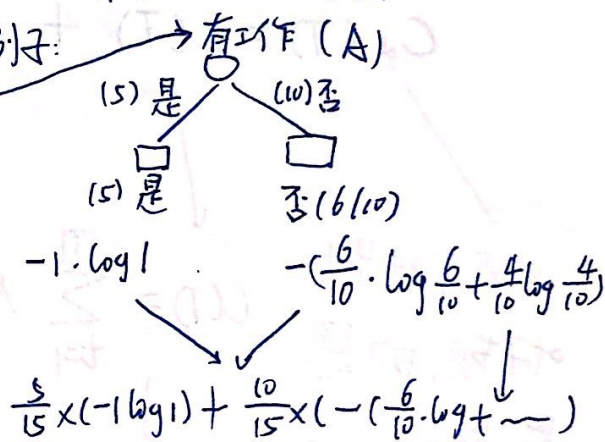 例子:
有工作 (A)
(5) 是 (10) 否
(5) 是 否(6/10)
-1·log1 -(6/10·log6/10+4/10log4/10)
5/15×(-1log1)+10/15×(-(6/10·log+~)